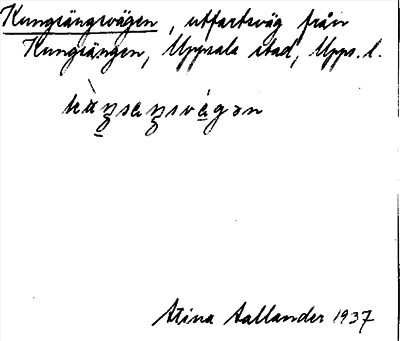 Kungsängsvägen, utfartsväg från
Kungsängen, Uppsala stad, Upps. l.
Stina Aallander 1937